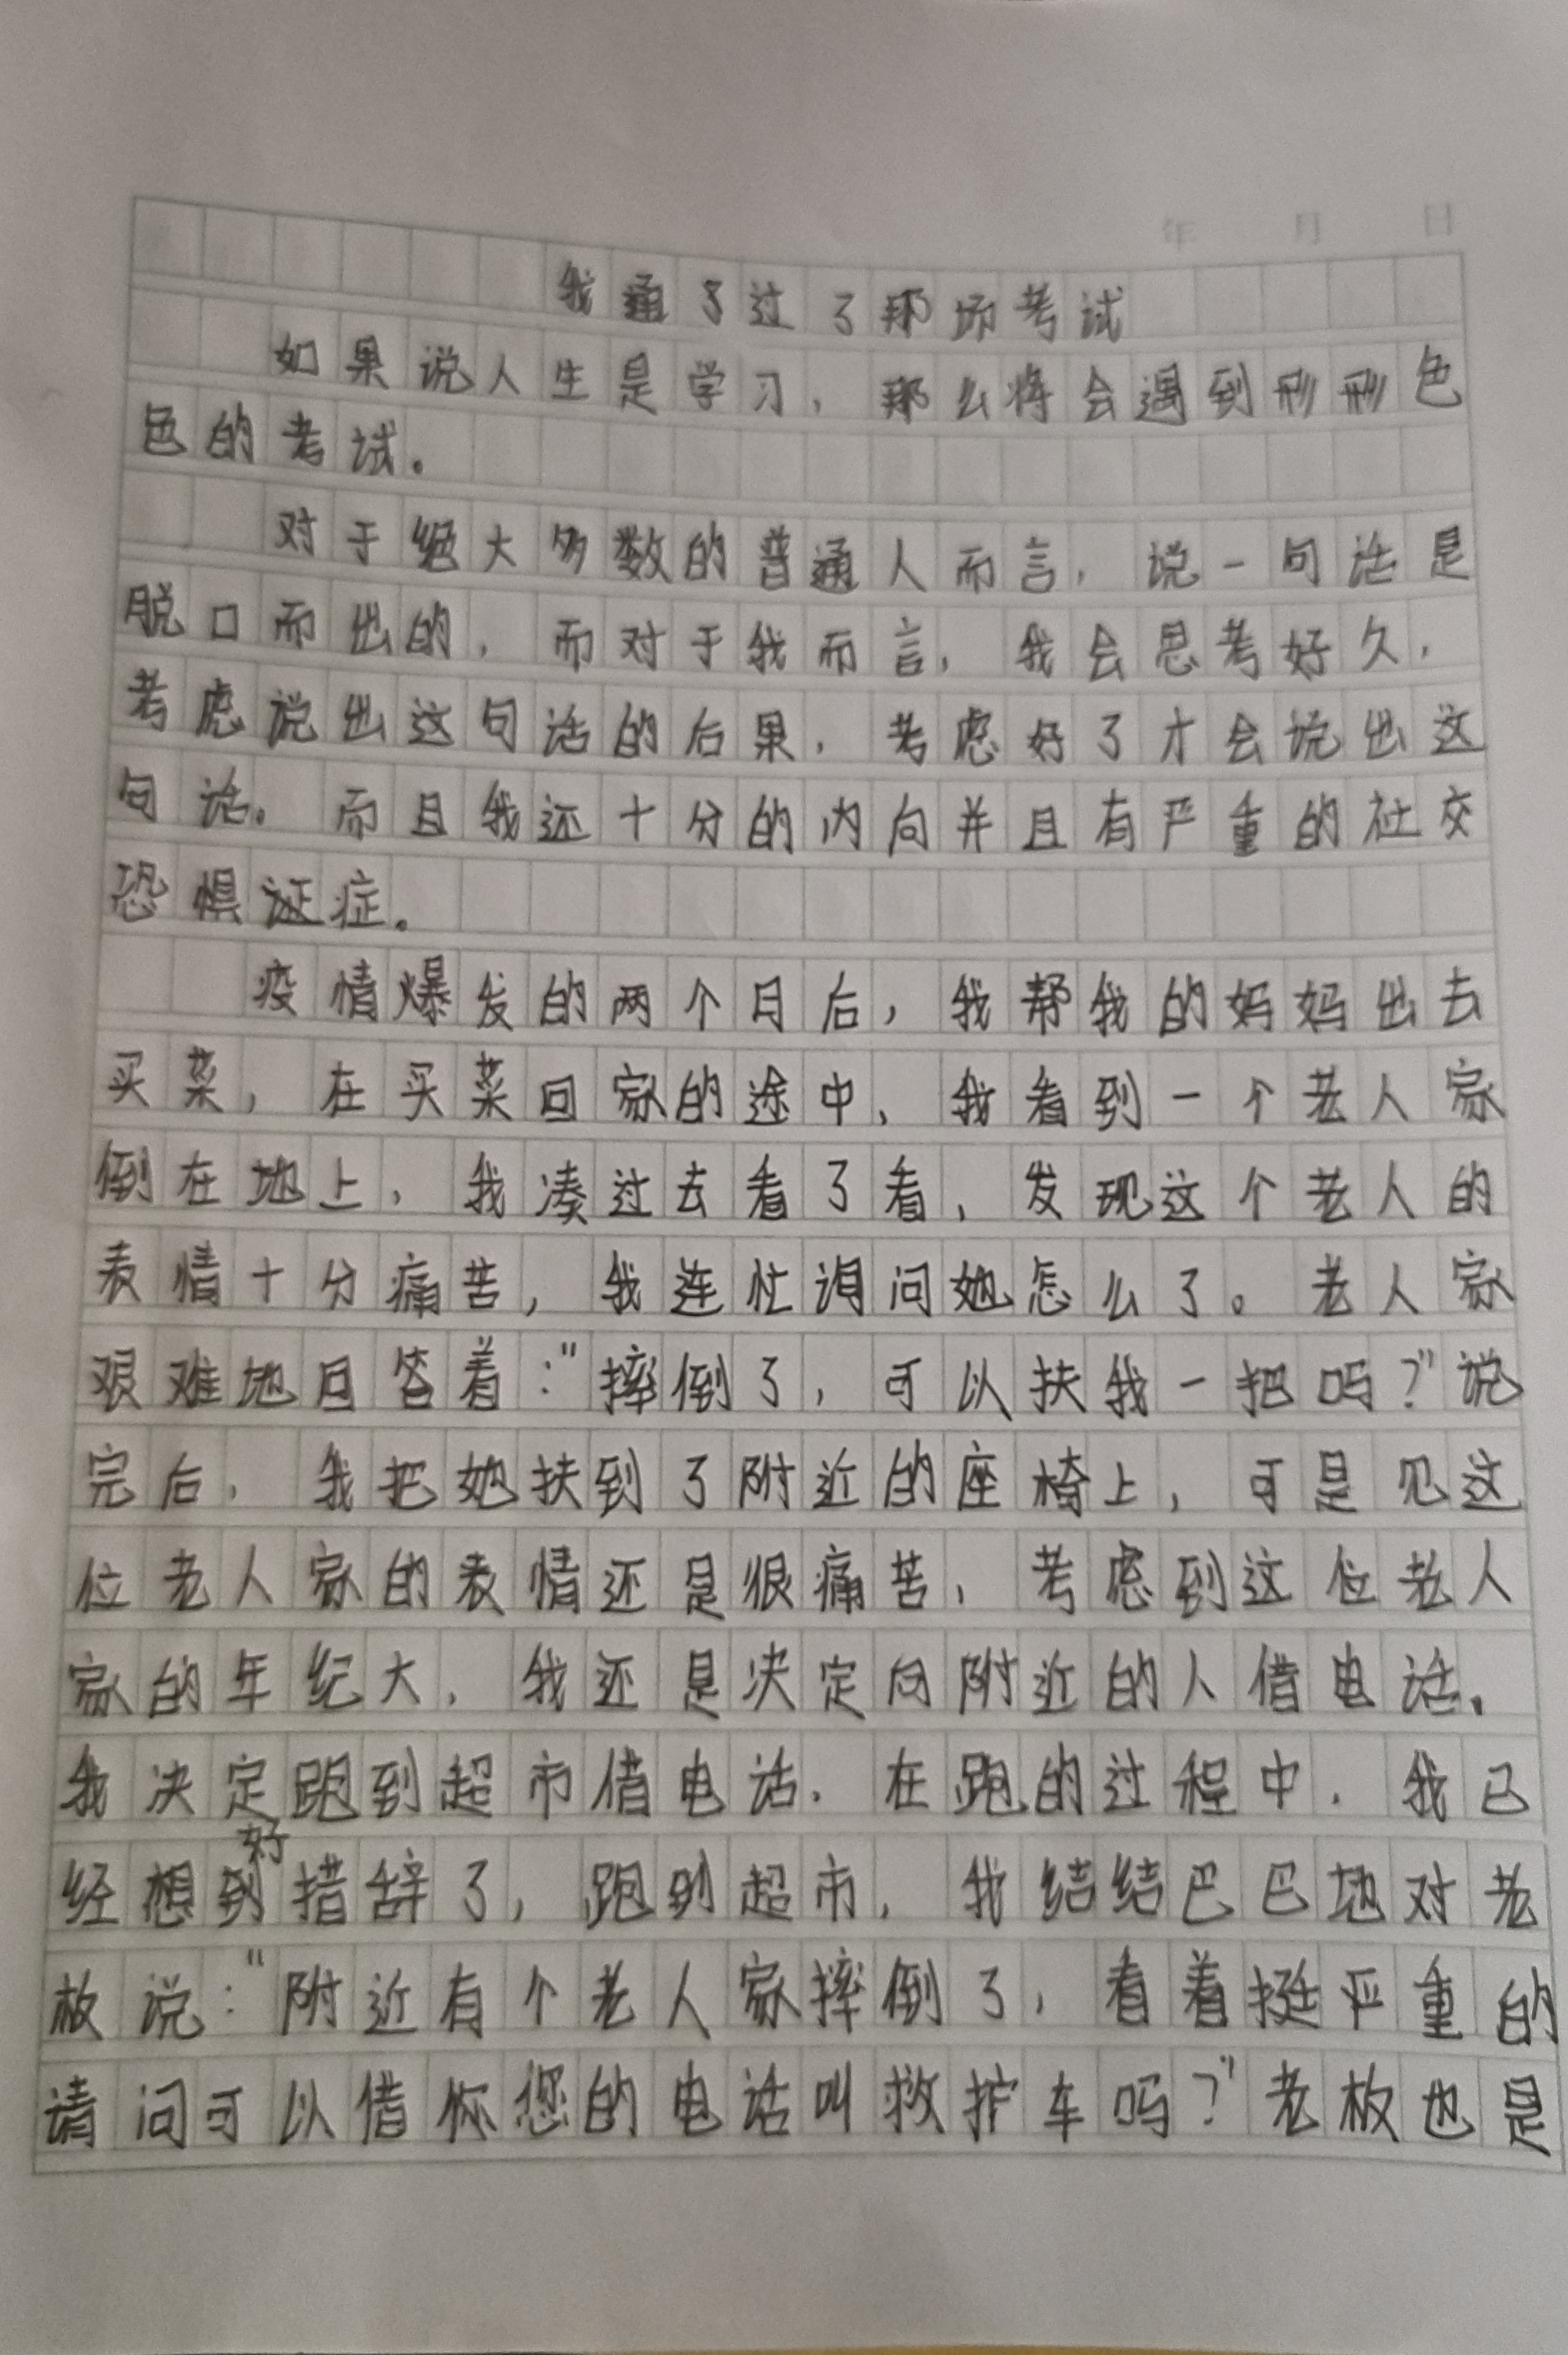 年 月 日
我通了过了那场考试
如果说人生是学习，那么将会遇到形形色
色的考试。
对于绝大多数的普通人而言，说一句话是
脱口而出的，而对于我而言，我会思考好久，
考虑说出这句话的后果，考虑好了才会说出这
句话。而且我还十分的内向并且有严重的社交
恐惧证症。
疫情爆发的两个月后，我帮我的妈妈出去
买菜，在买菜回家的途中，我看到一个老人家
倒在地上，我凑过去看了看，发现这个老人的
表情十分痛苦，我连忙询问她怎么了。老人家
艰难地回答着："摔倒了，可以扶我一把吗？"说
完后，我把她扶到了附近的座椅上，可是见这
位老人家的表情还是很痛苦，考虑到这位老人
家的年纪大，我还是决定向附近的人借电话。
我决定跑到超市借电话。在跑的过程中，我已
经想到好措辞了，跑到超市，我结结巴巴地对老
板说："附近有个老人家摔倒了，看着挺严重的
请问可以借你您的电话叫救护车吗？"老板也是